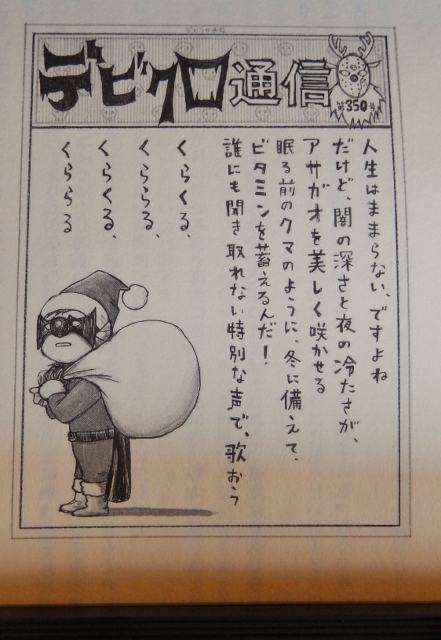 デビクロ通信
第350号
人生はままらない、ですよね
だけど、闇の深さと夜の冷たさが、
アサガオを美しく咲かせる
眠る前のクマのように、冬に備えて、
ビタミンを蓄えるんだ！
誰にも聞き取れない特別な声で、歌おう
くらくる、
くららる、
くらくる、
くららる